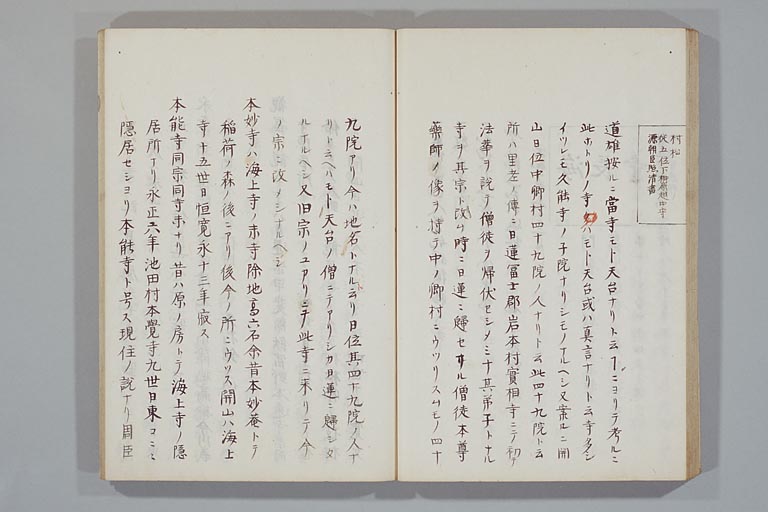 村松
従五位下
源朝臣
道雄按ルニ當寺モト天台ナリト云フニヨリテ考ルニ
此ホトリノ寺々ハモト天台或ハ真言ナリト云寺多シ
イツレモ久能寺ノ子院ナリシモノナルヘシ又案ルニ開
山日位中郷村四十九院ノ人ナリト云此四十九院ト云
所ハ里老ノ傳ニ日蓮冨士郡岩本村實相寺ニテ初テ
法華ヲ説テ僧徒ヲ帰伏セシメシニ十其弟子トナル
寺ヲ其宗ト改ム時ニ日蓮ニ歸セサル僧徒本尊
藥師ノ像ヲ持テ中ノ郷村ニウツリスムモノ四十
九院アリ今ハ地名トナルト云リ日位其四十九院ノ人ナ
リト云ヘハモト天台ノ僧ニテアリシカ日蓮ニ歸シタ
ルナルヘシ又旧宗ノユカリニテ此寺ニ来リテ今
ノ宗ニ改メシナルヘシ
本妙寺ハ海上寺ノ末寺除地高六石余昔本妙菴トテ
稲荷ノ森ノ後ニアリ後今ノ所ニウツス開山ハ海上
寺十五世日恒寛永十三年寂ス
本能寺同宗同寺末ナリ昔ハ原ノ房トテ海上寺ノ隠
居所ナリ永正六年池田村本覺寺九世日東コヽニ
隠居セシヨリ本能寺ト号ス現住ノ説ナリ周臣